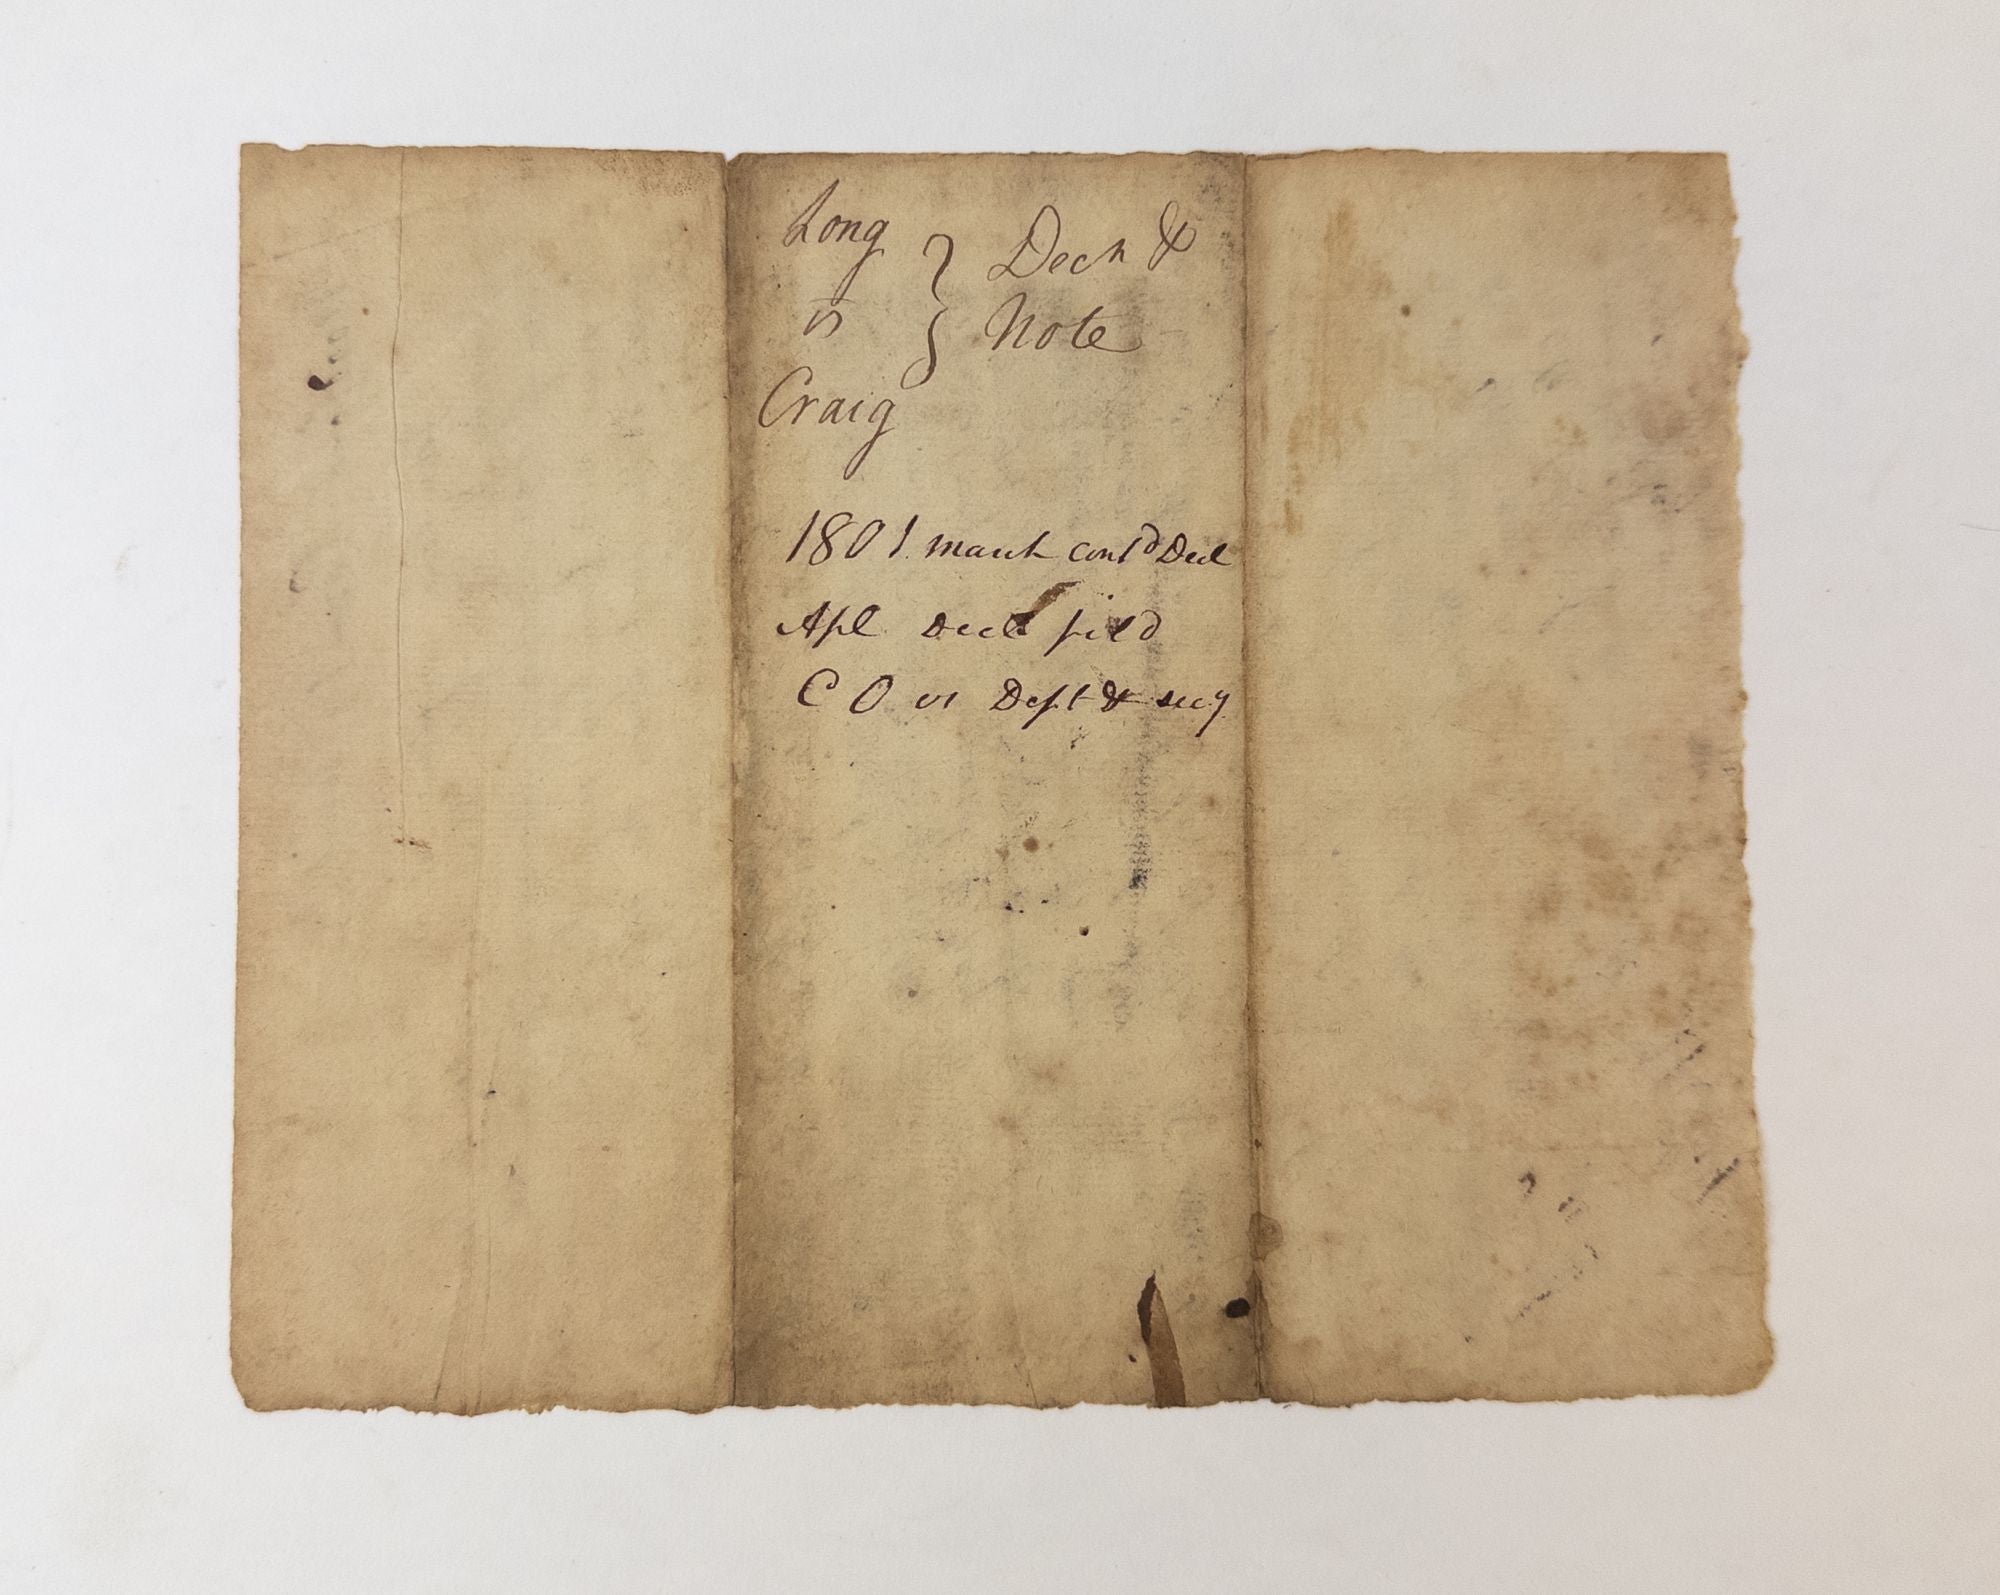 Long } Decn &
vs } Note
Craig
1801 march contd Decl
Apl Decl filed
C O vs Deft & secy